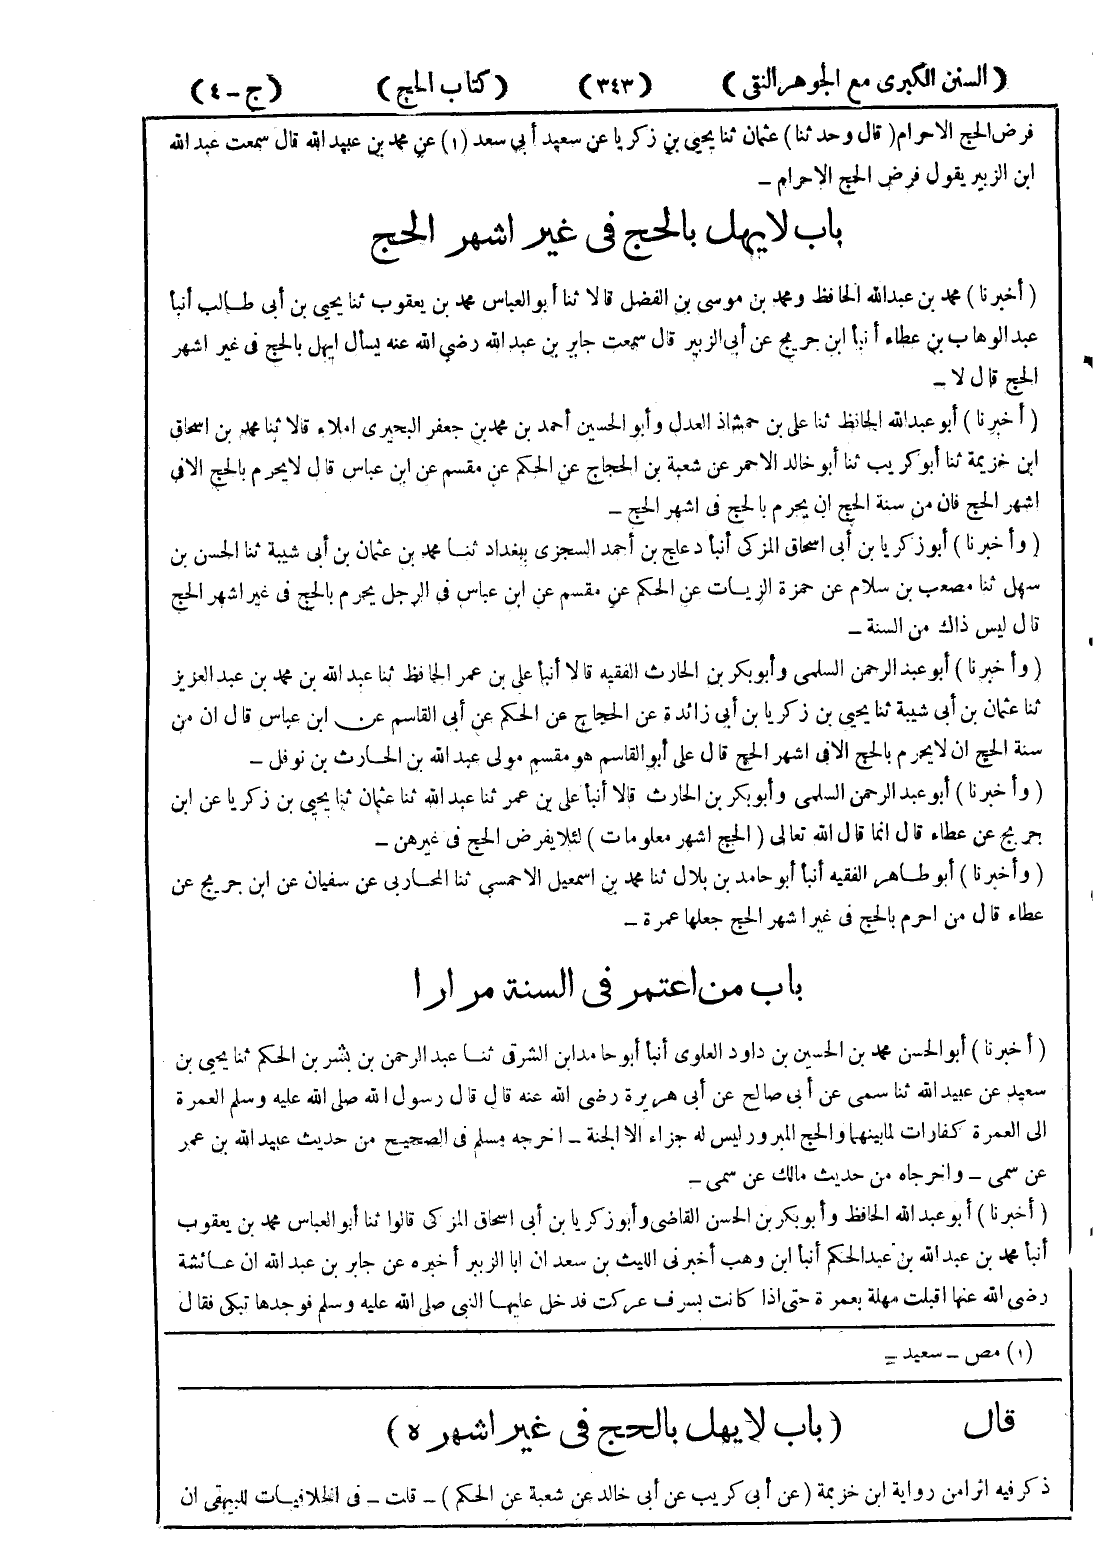 (السنن الكبرى مع الجوهر النقى) (٣٤٣) (كتاب الحج) (ج ـ ٤)
فرض الحج الاحرام (قال وحدثنا) عثمان ثنا يحيى بن زكريا عن سعيد أبى سعد (١) عن محمد بن عبيد الله قال سمعت عبد الله
ابن الزبير يقول فرض الحج الاحرام ـ
باب لا يهل بالحج فى غير اشهر الحج
(أخبرنا) محمد بن عبدالله الحافظ ومحمد بن موسى بن الفضل قالا ثنا أبو العباس محمد بن يعقوب ثنا يحيى بن أبى طالب أنبأ
عبد الوهاب بن عطاء أنبأ ابن جريج عن أبى الزبير قال سمعت جابر بن عبد الله رضى الله عنه يسأل ايهل بالحج فى غير اشهر
الحج قال لا ـ
(أخبرنا) أبو عبدالله الحافظ ثنا على بن حمشاذ العدل وأبو الحسين أحمد بن محمد بن جعفر البحيرى املاء قالا ثنا محمد بن اسحاق
ابن خزيمة ثنا أبو كريب ثنا أبو خالد الاحمر عن شعبة بن الحجاج عن الحكم عن مقسم عن ابن عباس قال لا يحرم بالحج الا فى
اشهر الحج فان من سنة الحج ان يحرم بالحج فى اشهر الحج ـ
(وأخبرنا) أبو زكريا بن أبى اسحاق المزكى أنبأ دعلج بن أحمد السجزى ببغداد ثنا محمد بن عثمان بن أبى شيبة ثنا الحسن بن
سهل ثنا مصعب بن سلام عن حمزة الزيات عن الحكم عن مقسم عن ابن عباس فى الرجل يحرم بالحج فى غير اشهر الحج
قال ليس ذاك من السنة ـ
(وأخبرنا) أبو عبد الرحمن السلمى وأبو بكر بن الحارث الفقيه قالا أنبأ على بن عمر الحافظ ثنا عبد الله بن محمد بن عبد العزيز
ثنا عثمان بن أبى شيبة ثنا يحيى بن زكريا بن أبى زائدة عن الحجاج عن الحكم عن أبى القاسم عن ابن عباس قال ان من
سنة الحج ان لا يحرم بالحج الا فى اشهر الحج قال على أبو القاسم هو مقسم مولى عبد الله بن الحارث بن نوفل ـ
(وأخبرنا) أبو عبد الرحمن السلمى وأبو بكر بن الحارث قالا أنبأ على بن عمر ثنا عبد الله ثنا عثمان ثنا يحيى بن زكريا عن ابن
جريج عن عطاء قال انما قال الله تعالى (الحج اشهر معلومات) لئلا يفرض الحج فى غيرهن ـ
(وأخبرنا) أبو طاهر الفقيه أنبأ أبو حامد بن بلال ثنا محمد بن اسمعيل الاحمسى ثنا المحاربى عن سفيان عن ابن جريج عن
عطاء قال من احرم بالحج فى غير اشهر الحج جعلها عمرة ـ
باب من اعتمر فى السنة مرارا
(أخبرنا) أبو الحسن محمد بن الحسين بن داود العلوى أنبأ أبو حامد ابن الشرقى ثنا عبد الرحمن بن بشر بن الحكم ثنا يحيى بن
سعيد عن عبيد الله ثنا سمى عن أبى صالح عن أبى هريرة رضى الله عنه قال قال رسول الله صلى الله عليه وسلم العمرة
الى العمرة كفارات لما بينهما والحج المبرور ليس له جزاء الا الجنة ـ اخرجه مسلم فى الصحيح من حديث عبيد الله بن عمر
عن سمى ـ واخرجاه من حديث مالك عن سمى ـ
(أخبرنا) أبو عبد الله الحافظ وأبو بكر بن الحسن القاضى وأبو زكريا بن أبى اسحاق المزكى قالوا ثنا أبو العباس محمد بن يعقوب
أنبأ محمد بن عبد الله بن عبد الحكم أنبأ ابن وهب أخبرنى الليث بن سعد ان ابا الزبير أخبره عن جابر بن عبد الله ان عائشة
رضى الله عنها اقبلت مهلة بعمرة حتى اذا كانت بسرف عركت فدخل عليها النبى صلى الله عليه وسلم فوجدها تبكى فقال
(١) مص ـ سعيد ـ
قال (باب لا يهل بالحج فى غير اشهره)
ذكر فيه اثرا من رواية ابن خزيمة (عن أبى كريب عن أبى خالد عن شعبة عن الحكم) ـ قلت ـ فى الخلافيات للبيهقى ان